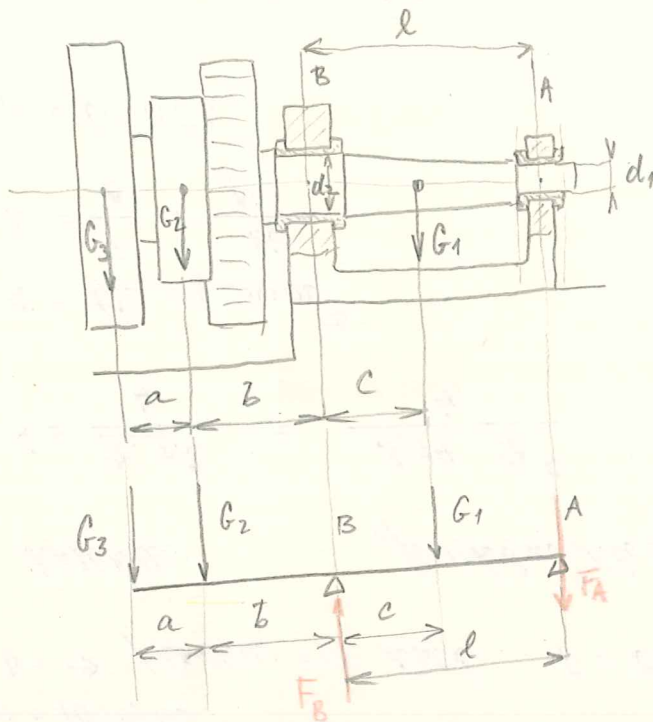 l
B
A
d₂
d₁
G₃
G₂
G₁
a
b
c
G₃
G₂
B
G₁
A
F_A
a
b
c
l
F_B